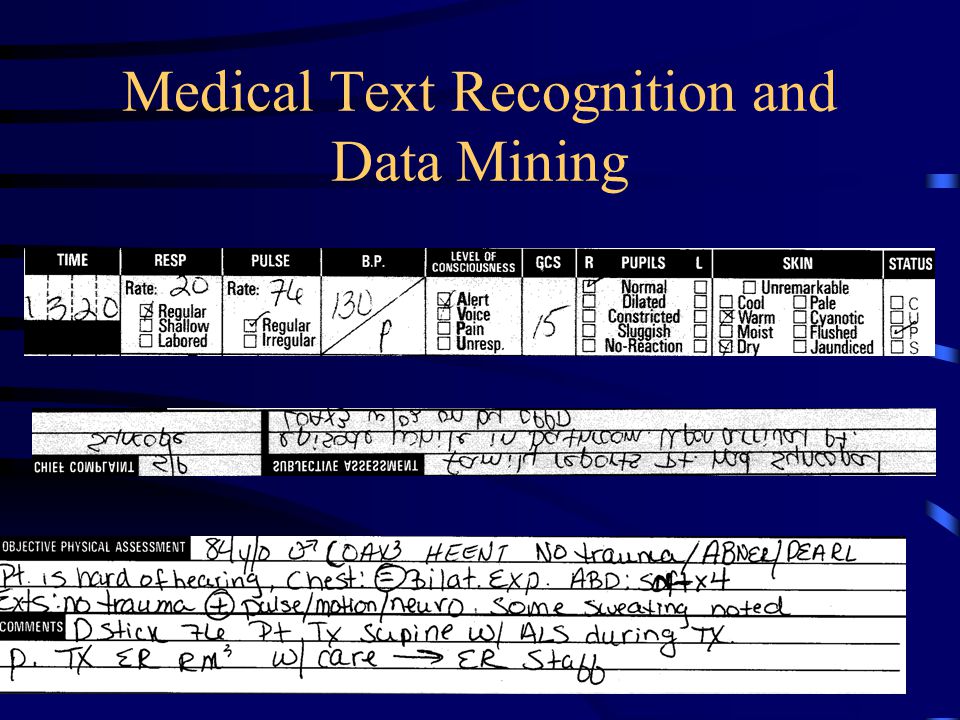 Medical Text Recognition and
Data Mining
TIME RESP PULSE B.P. LEVEL OF CONSCIOUSNESS GCS R PUPILS L SKIN STATUS
1320 Rate: 20 Rate: 76 130/P 15
Regular Shallow Labored
Regular Irregular
Alert Voice Pain Unresp.
Normal Dilated Constricted Sluggish No-Reaction
Unremarkable
Cool Pale
Warm Cyanotic
Moist Flushed
Dry Jaundiced
C U P S
CHIEF COMPLAINT S/P
Syncope
SUBJECTIVE ASSESSMENT family reports pt. had syncopal
episode while in bathroom. Upon arrival pt.
COAX3
OBJECTIVE PHYSICAL ASSESSMENT 84 y/o ♂ COAX3 HEENT No trauma/ABNEL/PEARL
Pt. is hard of hearing, Chest: = Bilat. Exp. ABD: soft x4
Exts: no trauma + pulse/motion/neuro. Some sweating noted
COMMENTS D stick 76 Pt Tx supine w/ ALS during TX.
p. TX ER RM3 w/ care → ER Staff